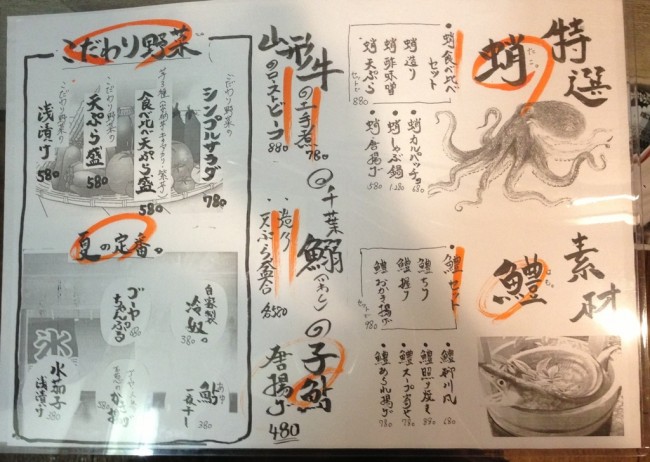 特選
素材
蛸
たこ
・蛸食べ比べ
セット
蛸造り
蛸酢味噌
蛸天ぷら
セットで
880
・蛸カルパッチョ
680
蛸しゃぶ鍋
1,280
蛸唐揚げ
580
鱧
はも
・鱧セット
鱧ちり
鱧握り
鱧おかき揚げ
セットで
980
・鱧柳川風
680
鱧照り焼き
880
鱧スープ茶漬
780
鱧あられ揚げ
780
山形牛
の土手煮
780
のローストビーフ
880
の千葉鰯
(いわし)
・造り
・天ぷら盛合
各580
の子鮎
唐揚げ
480
こだわり野菜
こだわり野菜の
シンプルサラダ
780
食べ比べ天ぷら盛
580
こだわり野菜の
天ぷら盛
580
こだわり野菜の
浅漬け
580
夏の定番
自家製
冷奴
380
ゴーヤの
ちゃんぷる
鮎
あゆ
一夜干し
380
氷
水茄子
浅漬け
380